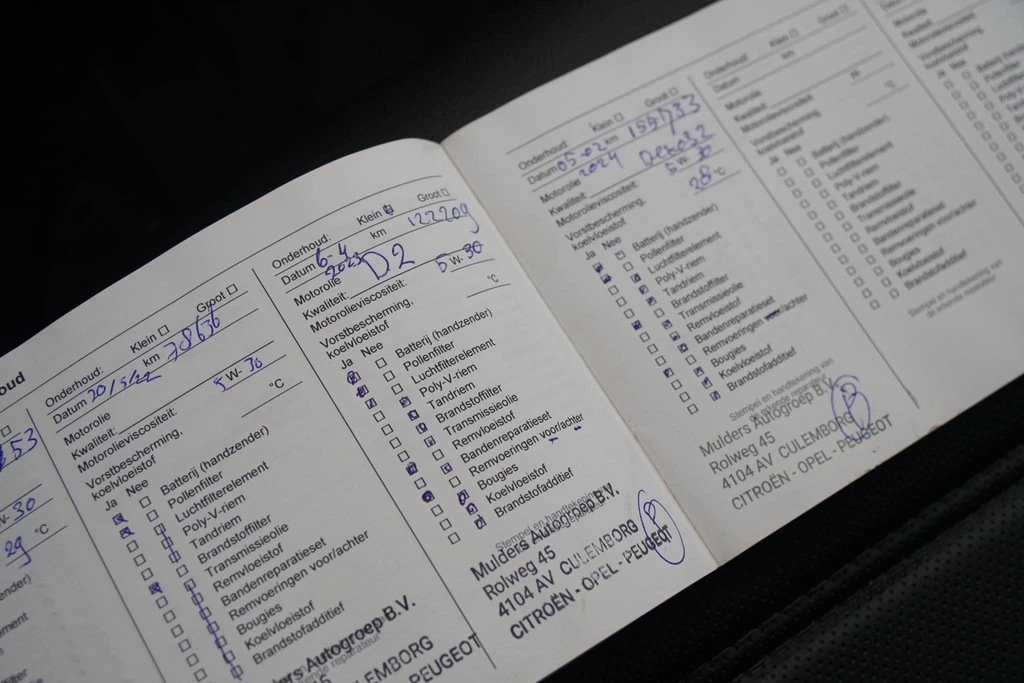 oud
53
W-30
29 °C
Onderhoud: Klein Groot
Datum 20/5/22 km 78636
Motorolie
Kwaliteit: 5 W- 30
Motorolieviscositeit:
Vorstbescherming, °C
koelvloeistof
Ja Nee
Batterij (handzender)
Pollenfilter
Luchtfilterelement
Poly-V-riem
Tandriem
Brandstoffilter
Transmissieolie
Remvloeistof
Bandenreparatieset
Remvoeringen voor/achter
Bougies
Koelvloeistof
Brandstofadditief
ders Autogroep B.V.
CULEMBORG
PEUGEOT
Onderhoud: Klein Groot
Datum 6-4 2023 km 122209
Motorolie D2
Kwaliteit: 5 W- 30
Motorolieviscositeit:
Vorstbescherming, °C
koelvloeistof
Ja Nee
Batterij (handzender)
Pollenfilter
Luchtfilterelement
Poly-V-riem
Tandriem
Brandstoffilter
Transmissieolie
Remvloeistof
Bandenreparatieset
Remvoeringen voor/achter
Bougies
Koelvloeistof
Brandstofadditief
Stempel en handtekening
Mulders Autogroep B.V.
Rolweg 45
4104 AV CULEMBORG
CITROËN - OPEL - PEUGEOT
Onderhoud: Klein Groot
Datum 05-02 2024 km 155733
Motorolie
Kwaliteit: 5 W- 30
Motorolieviscositeit:
Vorstbescherming, 28 °C
koelvloeistof
Ja Nee
Batterij (handzender)
Pollenfilter
Luchtfilterelement
Poly-V-riem
Tandriem
Brandstoffilter
Transmissieolie
Remvloeistof
Bandenreparatieset
Remvoeringen voor/achter
Bougies
Koelvloeistof
Brandstofadditief
Stempel en handtekening van
Mulders Autogroep B.V.
Rolweg 45
4104 AV CULEMBORG
CITROËN - OPEL - PEUGEOT
Onderhoud: Klein Groot
Datum km
Motorolie
Kwaliteit: W-
Motorolieviscositeit:
Vorstbescherming, °C
koelvloeistof
Ja Nee
Batterij (handzender)
Pollenfilter
Luchtfilterelement
Poly-V-riem
Tandriem
Brandstoffilter
Transmissieolie
Remvloeistof
Bandenreparatieset
Remvoeringen voor/achter
Bougies
Koelvloeistof
Brandstofadditief
Stempel en handtekening van
de erkende reparateur
Motorolie
Kwaliteit:
Motorolieviscositeit:
Vorstbescherming,
koelvloeistof
Ja Nee